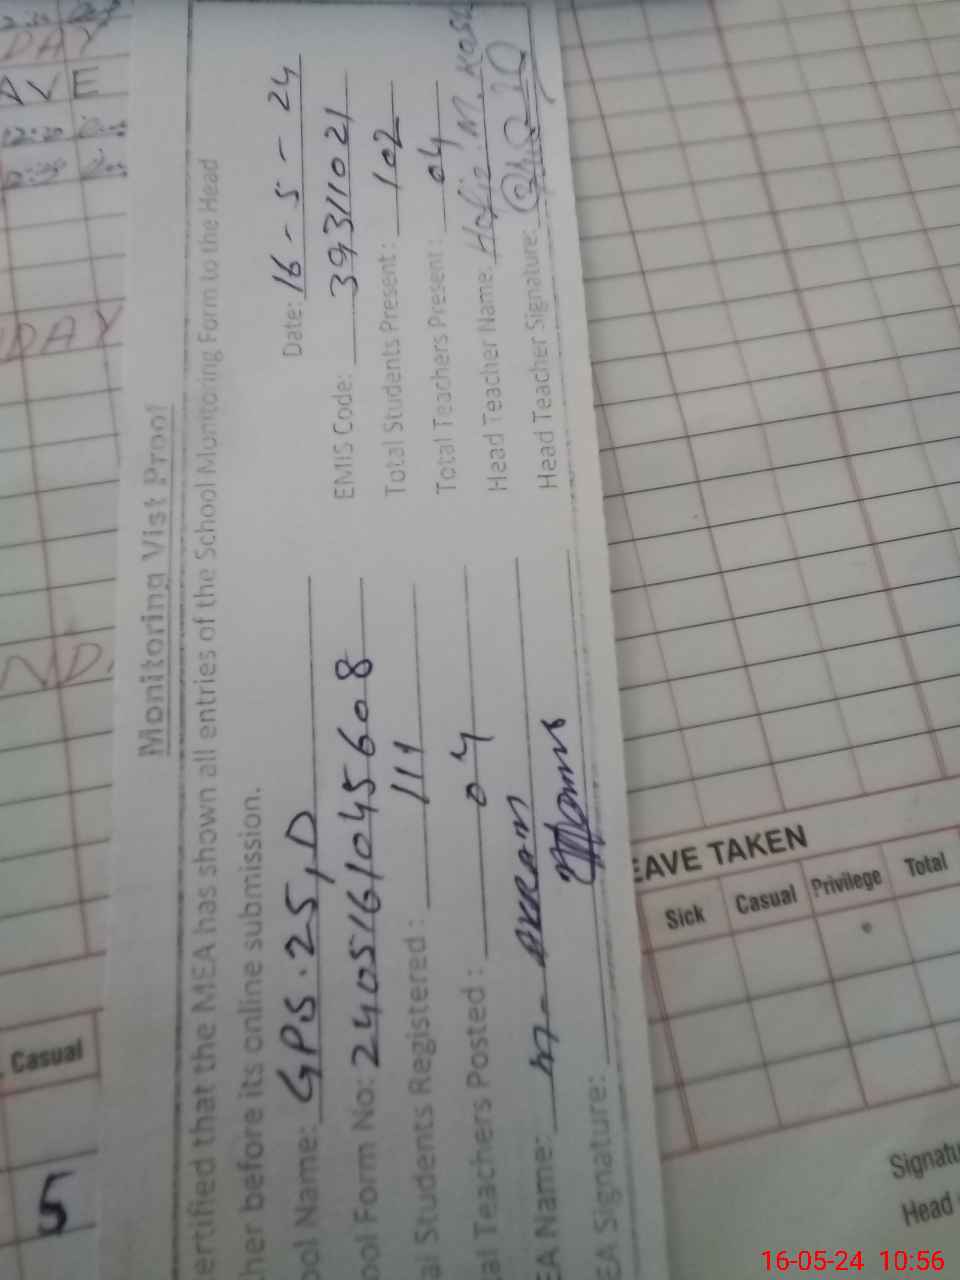 Monitoring Vist Proof
ertified that the MEA has shown all entries of the School Monitoring Form to the Head
her before its online submission.
ool Name: GPS. 25, D Date: 16 - 5 - 24
ool Form No: 2405161045608 EMIS Code: 39311021
al Students Registered : 111 Total Students Present : 102
al Teachers Posted : 04 Total Teachers Present : 04
EA Name: M- AKRAM Head Teacher Name: Hafiz M.
EA Signature: Head Teacher Signature:
AVE
DAY
ND
Casual
5
EAVE TAKEN
Sick Casual Privilege Total
Signatu
Head
16-05-24 10:56